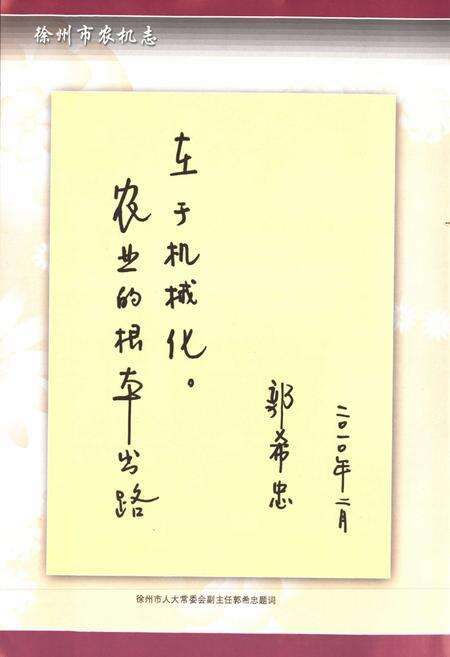 徐州市农机志
农业的根本出路
在于机械化。
郭希忠
二〇一〇年二月
徐州市人大常委会副主任郭希忠题词